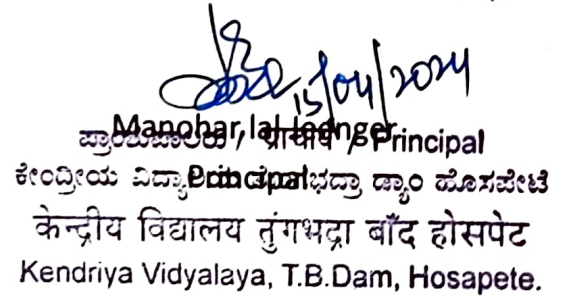 15/04/2024
Manohar lal Leenger
ಪ್ರಾಂಶುಪಾಲರು / प्राचार्य / Principal
Principal
ಕೇಂದ್ರೀಯ ವಿದ್ಯಾಲಯ ತುಂಗಭದ್ರಾ ಡ್ಯಾಂ ಹೊಸಪೇಟೆ
केन्द्रीय विद्यालय तुंगभद्रा बाँद होसपेट
Kendriya Vidyalaya, T.B.Dam, Hosapete.